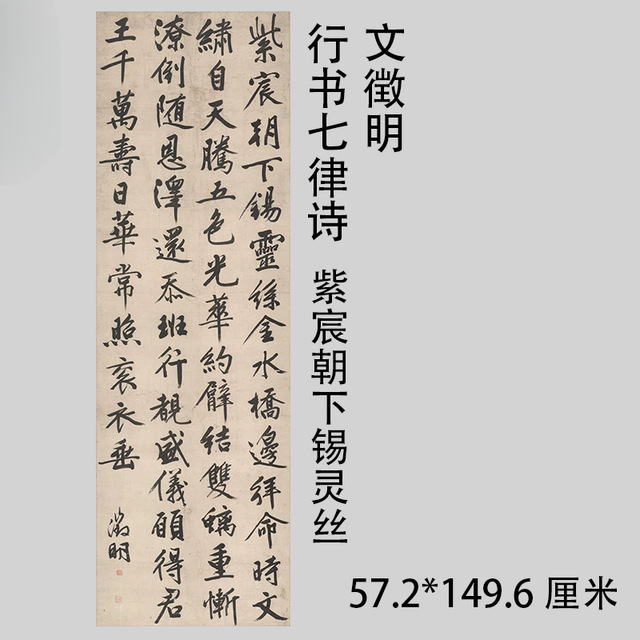 文徵明
行书七律诗 紫宸朝下锡灵丝
57.2*149.6 厘米
紫宸朝下錫靈絲金水橋邊拜命時文
繡自天騰五色光華約臂結雙螭重慚
潦倒随恩澤還忝班行覩盛儀願得君
王千萬壽日華常照衮衣垂
徵明